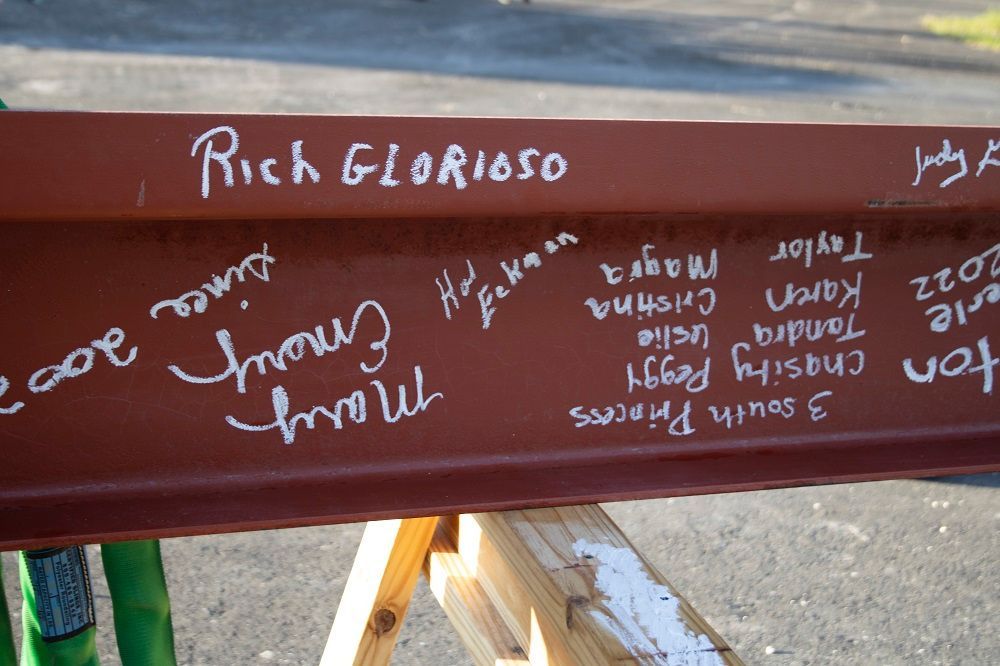 Rich GLORIOSO
Judy
Mary
Emery
since
200
Eckmann
3 South Princess
Chasity Peggy
Tandra Leslie
Karen Cristina
Taylor Magra
ton
erie
2022